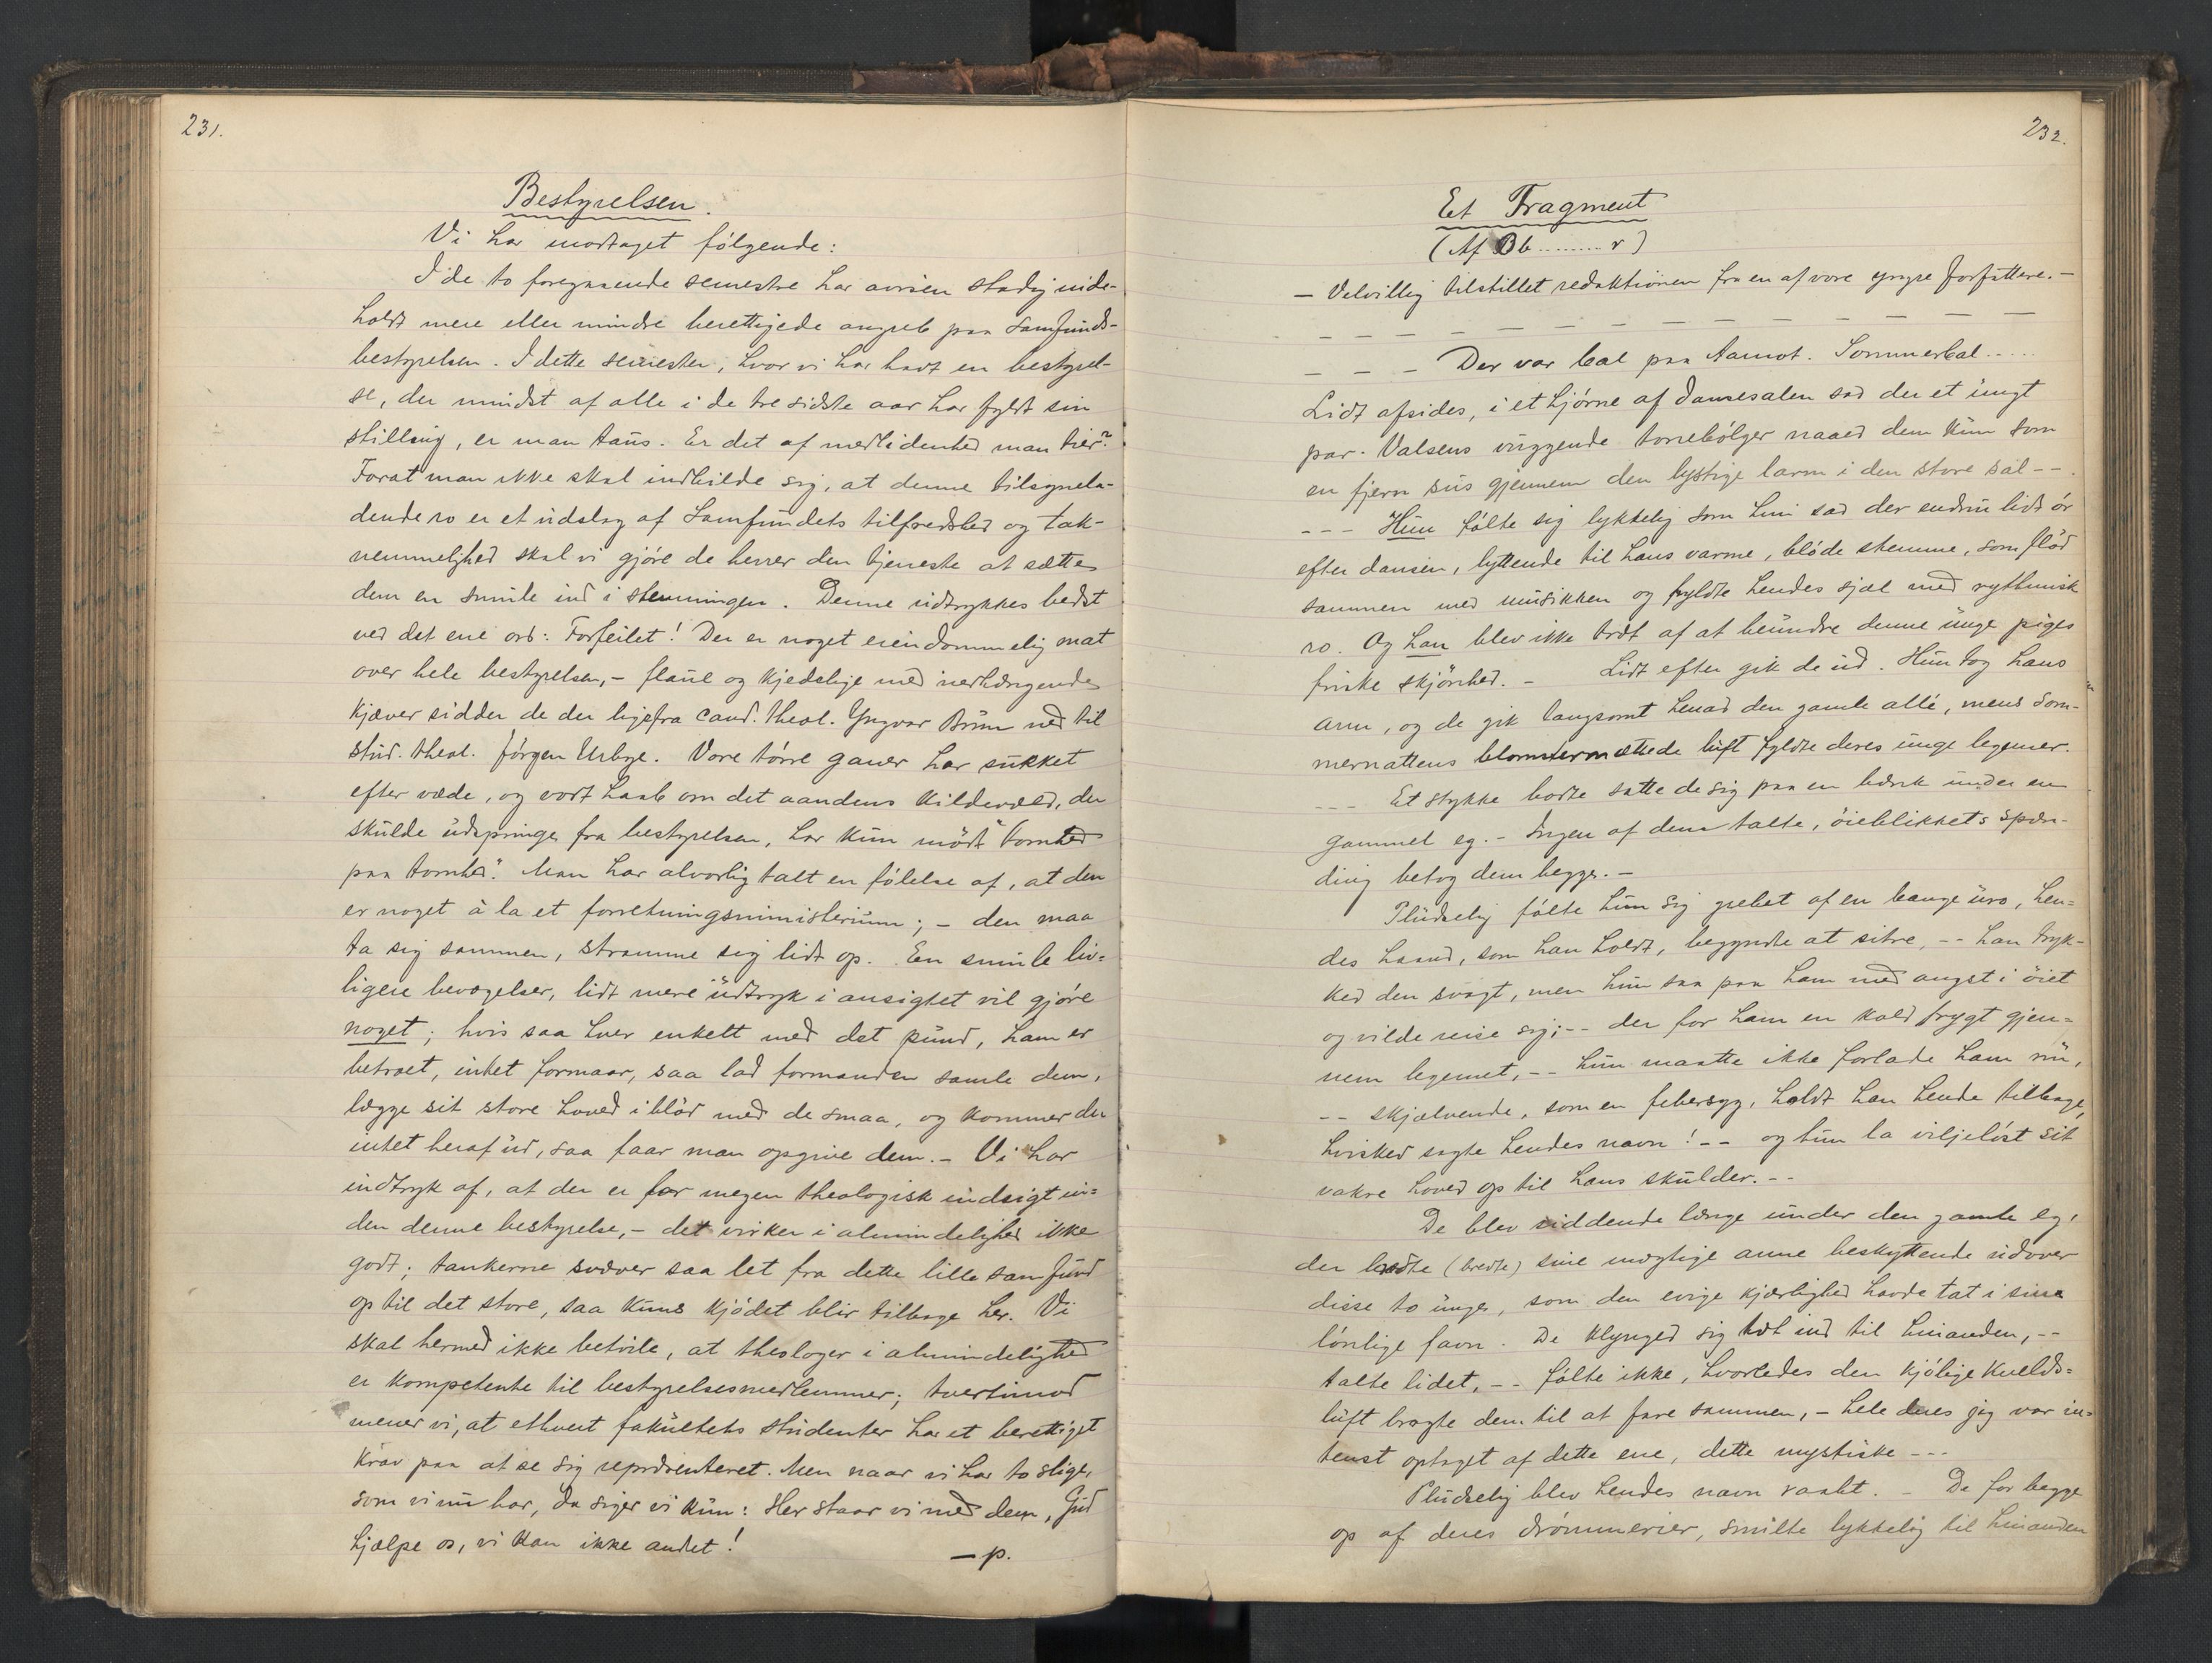 231.
Bestyrelsen.
Vi har modtaget følgende:
I de to foregaaende semestre har avisen stadig inde-
holdt mere eller mindre berettigede angreb paa Samfunds-
bestyrelsen. I dette semester, hvor vi har havt en bestyrel-
se, der mindst af alle i de tre sidste aar har fyldt sin
stilling, er man taus. Er det af medlidenhed man tier?
Forat man ikke skal indbilde sig, at denne tilsynela-
dende ro er et udslag af Samfundets tilfredshed og tak-
nemmelighed skal vi gjøre de herrer den tjeneste at sætte
dem en smule ind i stemningen. Denne udtrykkes bedst
ved det ene ord: Forfeilet! Der er noget eiendommelig mat
over hele bestyrelsen, – flaue og kjedelige med nedhængende
kjæver sidder de der ligefra cand. theol. Yngvar Brun ned til
stud. theol. Jørgen Urbye. Vore tørre ganer har sukket
efter væde, og vort haab om det aandens kildevæld, der
skulde udspringe fra bestyrelsen, har kun mødt "tomhed
paa tomhed". Man har alvorlig talt en følelse af, at den
er noget à la et forretningsministerium; – den maa
ta sig sammen, stramme sig lidt op. En smule liv=
ligere bevægelser, lidt mere udtryk i ansigtet vil gjøre
noget; hvis saa hver enkelt med det pund, ham er
betroet, intet formaar, saa lad formanden samle dem,
lægge sit store hoved i blød med de smaa, og kommer der
intet heraf ud, saa faar man opgive dem. – Vi har
indtryk af, at der er for megen theologisk indsigt in=
den denne bestyrelse, – det virker i almindelighed ikke
godt; tankerne svæver saa let fra dette lille samfund
op til det store, saa kuns kjødet blir tilbage her. Vi
skal hermed ikke betvile, at theologer i almindelighed
er kompetente til bestyrelsesmedlemmer; tvertimod
mener vi, at ethvert fakultets studenter har et berettiget
krav paa at se sig repræsenteret. Men naar vi har to slige,
som vi nu har, da siger vi kun: Her staar vi med dem, Gud
hjælpe os, vi kan ikke andet!
– p.
232.
Et Fragment
(Af Bb......... r)
– Velvillig tilstillet redaktionen fra en af vore yngre forfattere. –
– – – – – – – – – – – – – –
– – – Der var bal paa Aamot. Sommerbal .....
Lidt afsides, i et hjørne af dansesalen sad der et ungt
par. Valsens vuggende tonebølger naaed dem kun som
en fjern sus gjennem den lystige larm i den store sal – –.
– – – Hun følte sig lykkelig som hun sad der endnu lidt ør
efter dansen, lyttende til hans varme, bløde stemme, som flød
sammen med musikken og fyldte hendes sjæl med rythmisk
ro. Og han blev ikke træt af at beundre denne unge piges
friske skjønhed. – Lidt efter gik de ud. Hun tog hans
arm, og de gik langsomt henad den gamle allé, mens som-
mernattens blomstermættede luft fyldte deres unge legemer.
– – – Et stykke borte satte de sig paa en bænk under en
gammel eg. – Ingen af dem talte, øieblikkets spæn-
ding betog dem begge. –
Pludselig følte hun sig grebet af en bange uro, hen=
des haand, som han holdt, begyndte at sitre, – – han tryk-
ked den svagt, men hun saa paa ham med angst i øiet
og vilde reise sig; – – der for ham en kold frygt gjen=
nem legemet, – – hun maatte ikke forlade ham nu,
– – skjælvende, som en febersyg, holdt han hende tilbage,
hvisked sagte hendes navn! – – og hun la viljeløst sit
vakre hoved op til hans skulder. – –
De blev siddende længe under den gamle eg,
der bredte (bredte) sine mægtige arme beskyttende udover
disse to unge, som den evige kjærlighed havde tat i sin
lønlige favn. De klynged sig tæt ind til hinanden, – –
talte lidet, – – følte ikke, hvorledes den kjølige kvelds=
luft bragte dem til at fare sammen, – hele deres jeg var in=
tenst optaget af dette ene, dette mystiske – – –
Pludselig blev hendes navn raabt. – De for begge
op af deres drømmerier, smilte lykkelig til hinanden